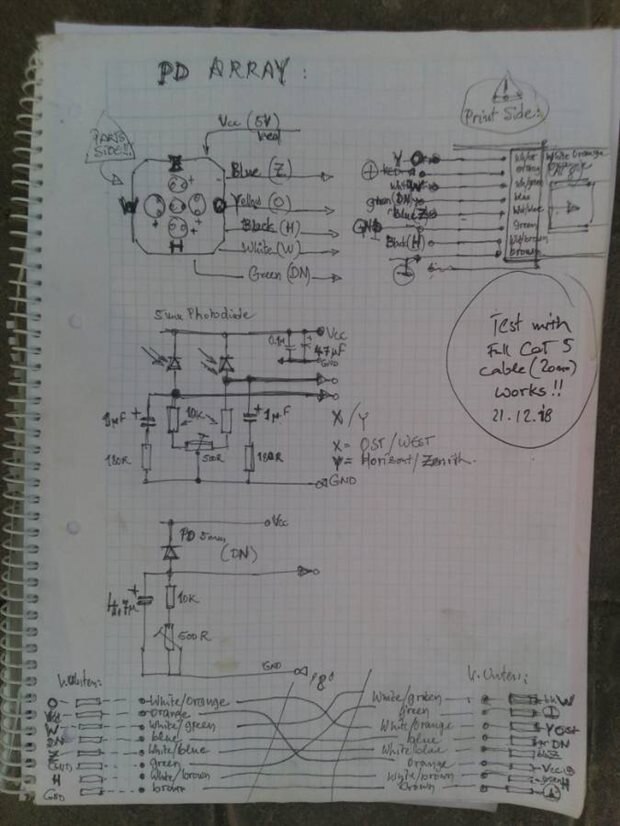 PD ARRAY:
Print Side:
PARTS SIDE!!
Vcc (5V)
red
Z
W
O
H
Blue (Z)
Yellow (O)
Black (H)
White (W)
Green (DN)
Y O
red
white W
green (DN)
blue Z
GND
Black (H)
White Orange
orange
wh/green
blue
wh/blue
green
wh/brown
brown
Test with
Full CAT 5
cable (20m)
works!!
21.12.18
5mm Photodiode
Vcc
0.1µ
47µF
GND
1µF
10K
1µF
500R
180R
180R
X/Y
X = OST/WEST
Y = Horizont/Zenith.
GND
Vcc
PD 5mm
(DN)
4,7µ
10K
500R
GND
V. Unten:
V. Unten:
O
White/orange
White/green
W
orange
green
W
White/green
White/orange
Y OST
DN
blue
blue
DN
Z
White/blue
White/blue
Z
GND
green
orange
Vcc
H
White/brown
White/brown
H
GND
brown
brown